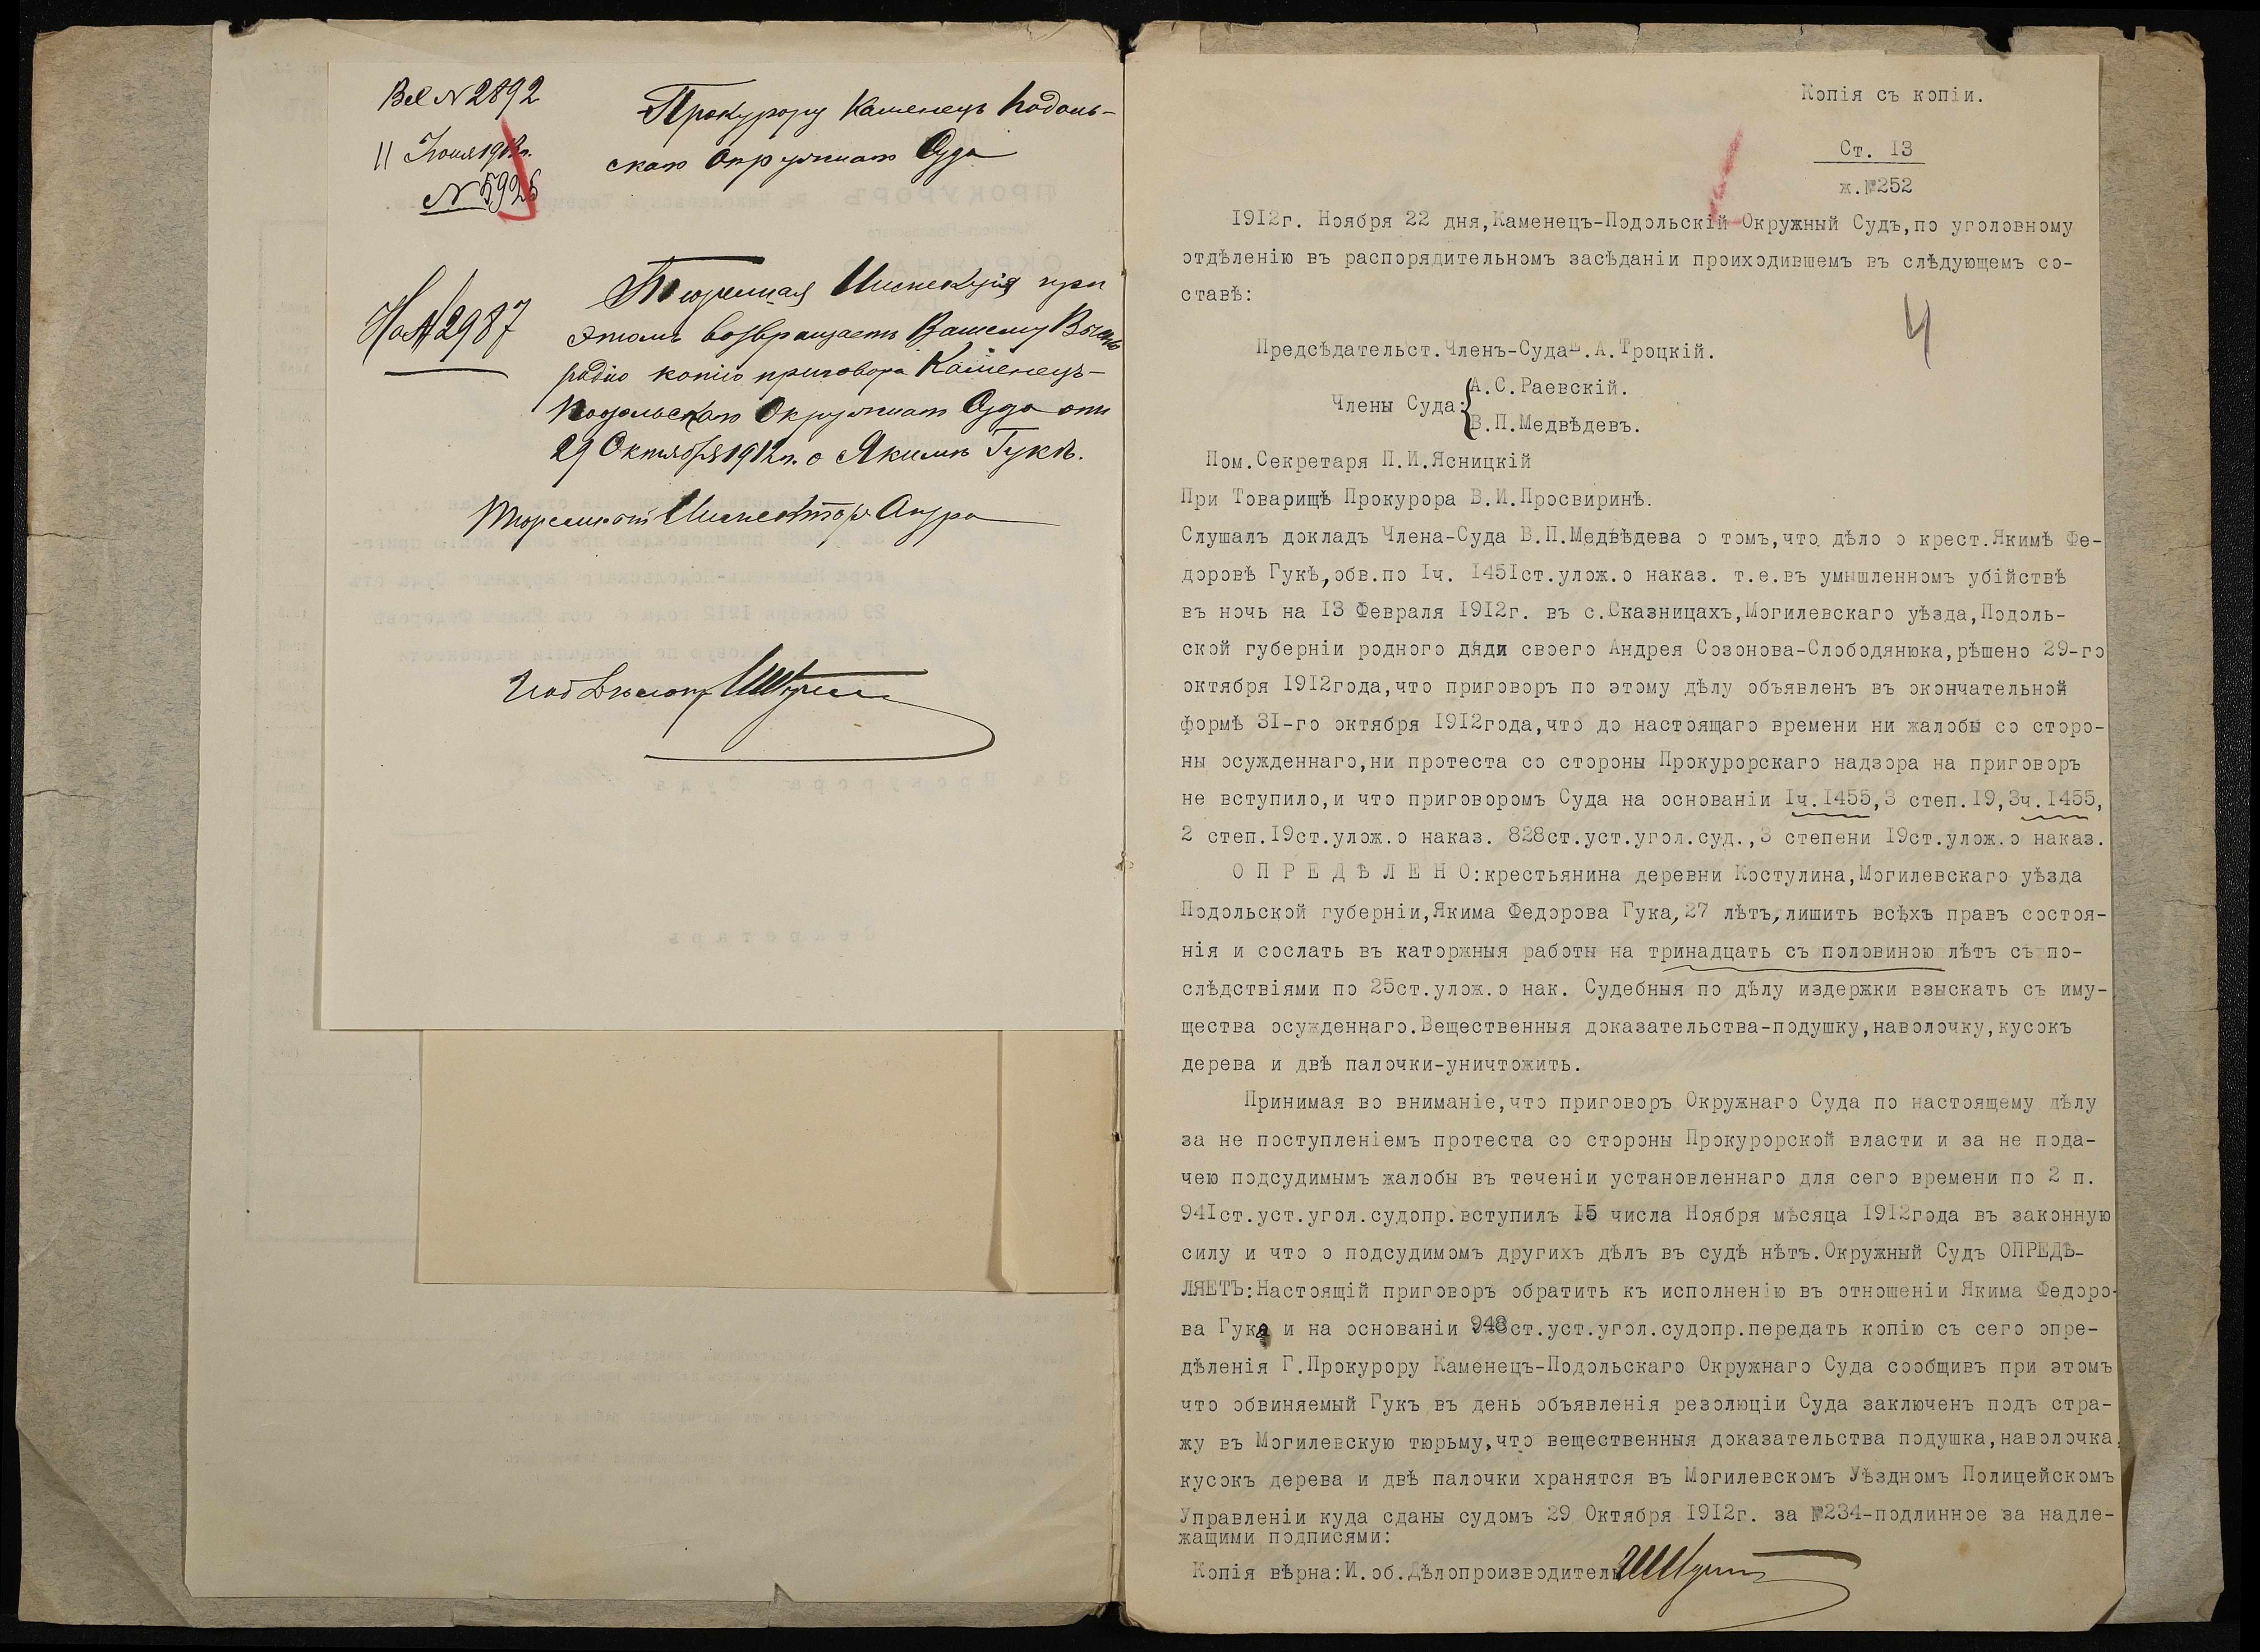 Вх № 2892
11 Іюня 1913г.
№ 5926
Прокурору Каменецъ Подоль-
скаго Окружнаго Суда
На № 2987
Тюремная Инспекція при
этомъ возвращаетъ Вашему Высоко
родію копію приговора Каменецъ-
Подольскаго Окружнаго Суда отъ
29 Октября 1912г. о Якимѣ Гукѣ.
Тюремный Инспекторъ
Копія съ копіи.
Ст. 13
ж.№252
4
1912г. Ноября 22 дня,Каменецъ-Подольскій Окружный Судъ,по уголовному
отдѣленію въ распорядительномъ засѣданіи проиходившемъ въ слѣдующемъ со-
ставѣ:
Предсѣдательст.Членъ-Суда .А.Троцкій.
Члены Суда:
А.С.Раевскій.
В.П.Медвѣдевъ.
Пом.Секретаря П.И.Ясницкій
При Товарищѣ Прокурора В.И.Просвиринѣ.
Слушалъ докладъ Члена-Суда В.П.Медвѣдева о томъ,что дѣло о крест.Якимѣ Фе-
доровѣ Гукѣ,обв.по 1ч. 1451ст.улож.о наказ. т.е.въ умышленномъ убійствѣ
въ ночь на 13 Февраля 1912г. въ с.Сказницахъ,Могилевскаго уѣзда,Подоль-
ской губерніи родного дяди своего Андрея Созонова-Слободянюка,рѣшено 29-го
октября 1912года,что приговоръ по этому дѣлу объявленъ въ окончательной
формѣ 31-го октября 1912года,что до настоящаго времени ни жалобы со сторо-
ны осужденнаго,ни протеста со стороны Прокурорскаго надзора на приговоръ
не вступило,и что приговоромъ Суда на основаніи 1ч.1455,3 степ.19,3ч.1455,
2 степ.19ст.улож.о наказ. 828ст.уст.угол.суд.,3 степени 19ст.улож.о наказ.
О П Р Е Д Ѣ Л Е Н О:крестьянина деревни Костулина,Могилевскаго уѣзда
Подольской губерніи,Якима Федорова Гука,27 лѣтъ,лишить всѣхъ правъ состоя-
нія и сослать въ каторжныя работы на тринадцать съ половиною лѣтъ съ по-
слѣдствіями по 25ст.улож.о нак. Судебныя по дѣлу издержки взыскать съ иму-
щества осужденнаго.Вещественныя доказательства-подушку,наволочку,кусокъ
дерева и двѣ палочки-уничтожить.
Принимая во вниманіе,что приговоръ Окружнаго Суда по настоящему дѣлу
за не поступленіемъ протеста со стороны Прокурорской власти и за не пода-
чею подсудимымъ жалобы въ теченіи установленнаго для сего времени по 2 п.
941ст.уст.угол.судопр.вступилъ 15 числа Ноября мѣсяца 1912года въ законную
силу и что о подсудимомъ другихъ дѣлъ въ судѣ нѣтъ.Окружный Судъ ОПРЕДѢ-
ЛЯЕТЪ:Настоящій приговоръ обратить къ исполненію въ отношеніи Якима Федоро-
ва Гука и на основаніи 948ст.уст.угол.судопр.передать копію съ сего опре-
дѣленія Г.Прокурору Каменецъ-Подольскаго Окружнаго Суда сообщивъ при этомъ
что обвиняемый Гукъ въ день объявленія резолюціи Суда заключенъ подъ стра-
жу въ Могилевскую тюрьму,что вещественныя доказательства подушка,наволочка,
кусокъ дерева и двѣ палочки хранятся въ Могилевскомъ Уѣздномъ Полицейскомъ
Управленіи куда сданы судомъ 29 Октября 1912г. за №234-подлинное за надле-
жащими подписями:
Копія вѣрна:И.об.Дѣлопроизводителя